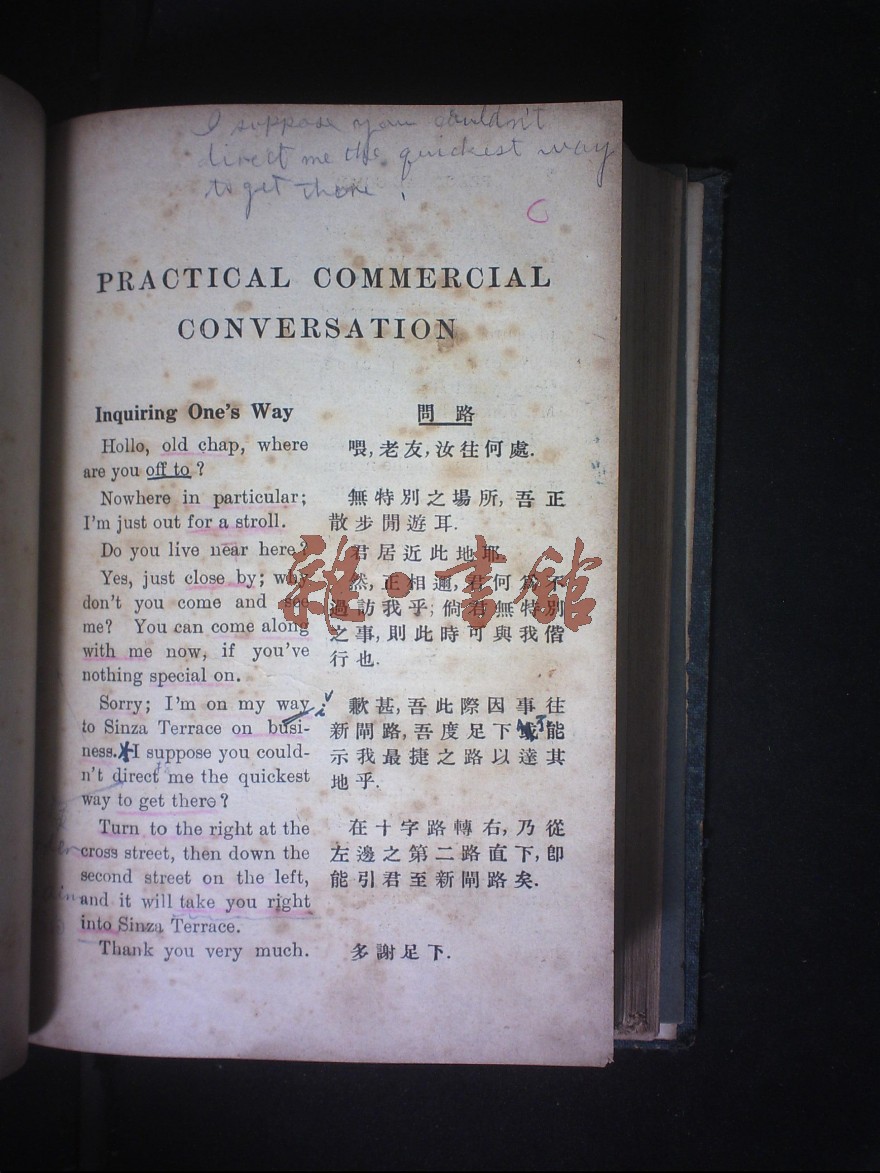 I suppose you couldn't
direct me the quickest way
to get there.
PRACTICAL COMMERCIAL
CONVERSATION
Inquiring One's Way
Hollo, old chap, where
are you off to?
Nowhere in particular;
I'm just out for a stroll.
Do you live near here?
Yes, just close by; why
don't you come and see
me? You can come along
with me now, if you've
nothing special on.
Sorry; I'm on my way
to Sinza Terrace on busi-
ness. I suppose you could-
n't direct me the quickest
way to get there?
Turn to the right at the
cross street, then down the
second street on the left,
and it will take you right
into Sinza Terrace.
Thank you very much.
問路
喂, 老友, 汝往何處.
無特別之塲所, 吾正
散步閒遊耳.
君居近此地耶.
然, 正相邇, 君何爲不
過訪我乎, 倘君無特別
之事, 則此時可與我偕
行也.
歉甚, 吾此際因事往
新閘路, 吾度足下或能
示我最捷之路以達其
地乎.
在十字路轉右, 乃從
左邊之第二路直下, 卽
能引君至新閘路矣.
多謝足下.
雜·書館